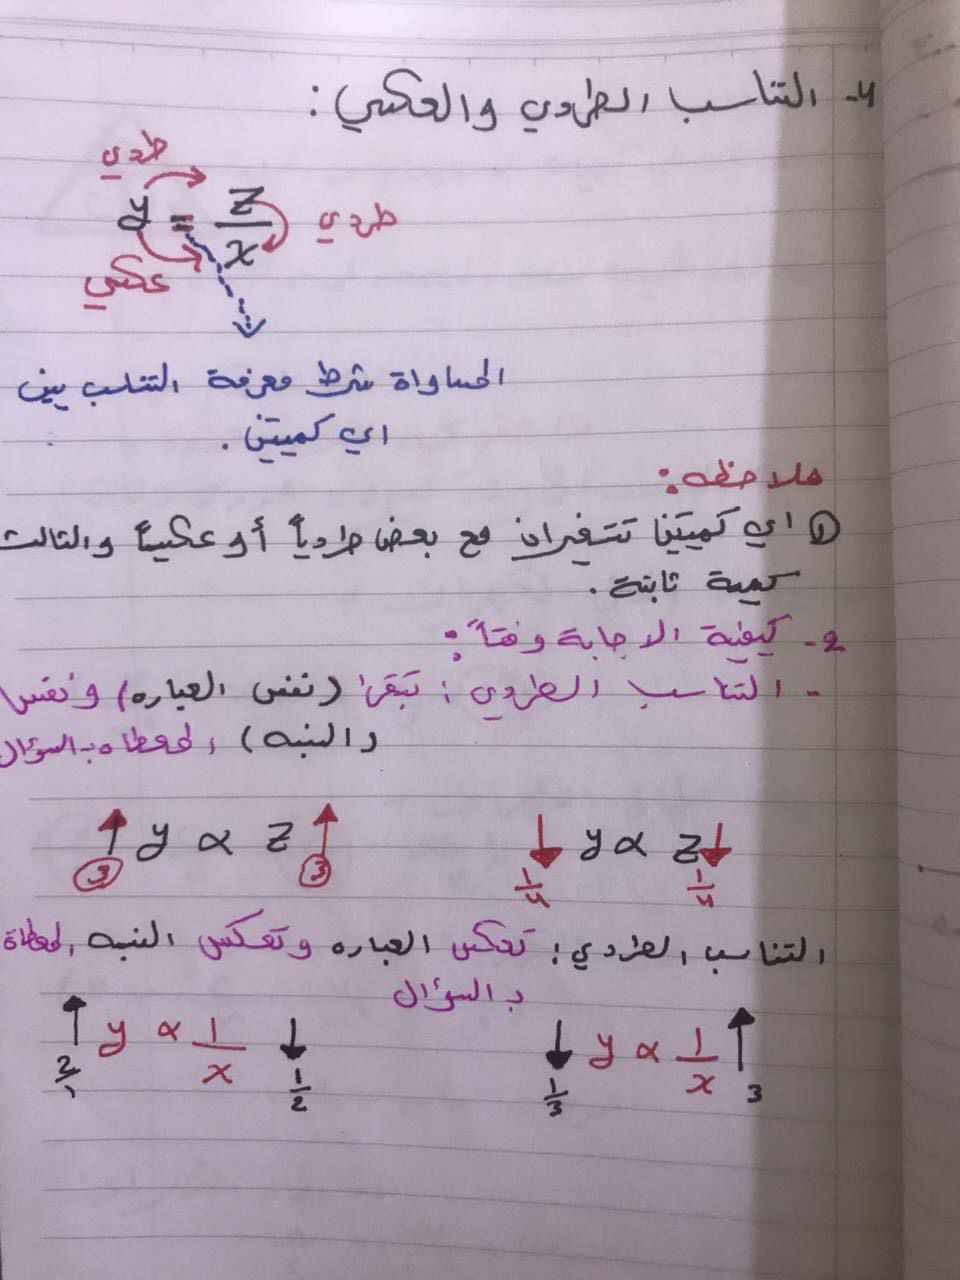 4- التناسب الطردي والعكسي :
طردي
y = z/x
طردي
عكسي
المساواة شرط معرفة التناسب بين
اي كميتين .
ملاحظه :
① اي كميتين تتغيران مع بعض طردياً أو عكسياً والثالث
كمية ثابتة .
2- كيفية الاجابة وفقاً :
- التناسب الطردي : تبقى (نفس العباره) ونفس
(النسبه) المعطاه بالسؤال
↑3 y ∝ z ↑3    ↓1/4 y ∝ z ↓1/4
التناسب الطردي : تعكس العباره وتعكس النسبه المعطاة
بالسؤال
↑2/1 y ∝ 1/x ↓1/2    ↓1/3 y ∝ 1/x ↑3